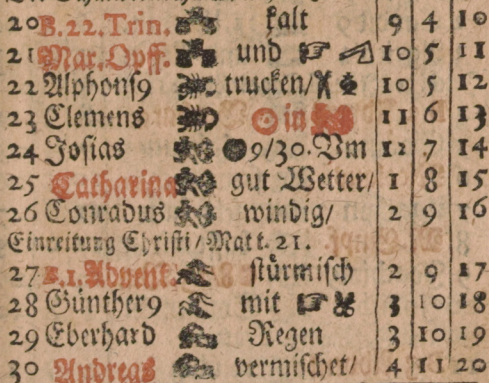 20 B.22.Trin. kalt 9 4 10
21 Mar. Opff. und 10 5 11
22 Alphons9 trucken/ 10 5 12
23 Clemens ☉ in 11 6 13
24 Josias ●9/30.Vm 12 7 14
25 Catharina gut Wetter/ 1 8 15
26 Conradus windig/ 2 9 16
Einreitung Christi/ Matt. 21.
27 B.1.Advent. stürmisch 2 9 17
28 Günther9 mit 3 10 18
29 Eberhard Regen 3 10 19
30 Andreas vermischet/ 4 11 20